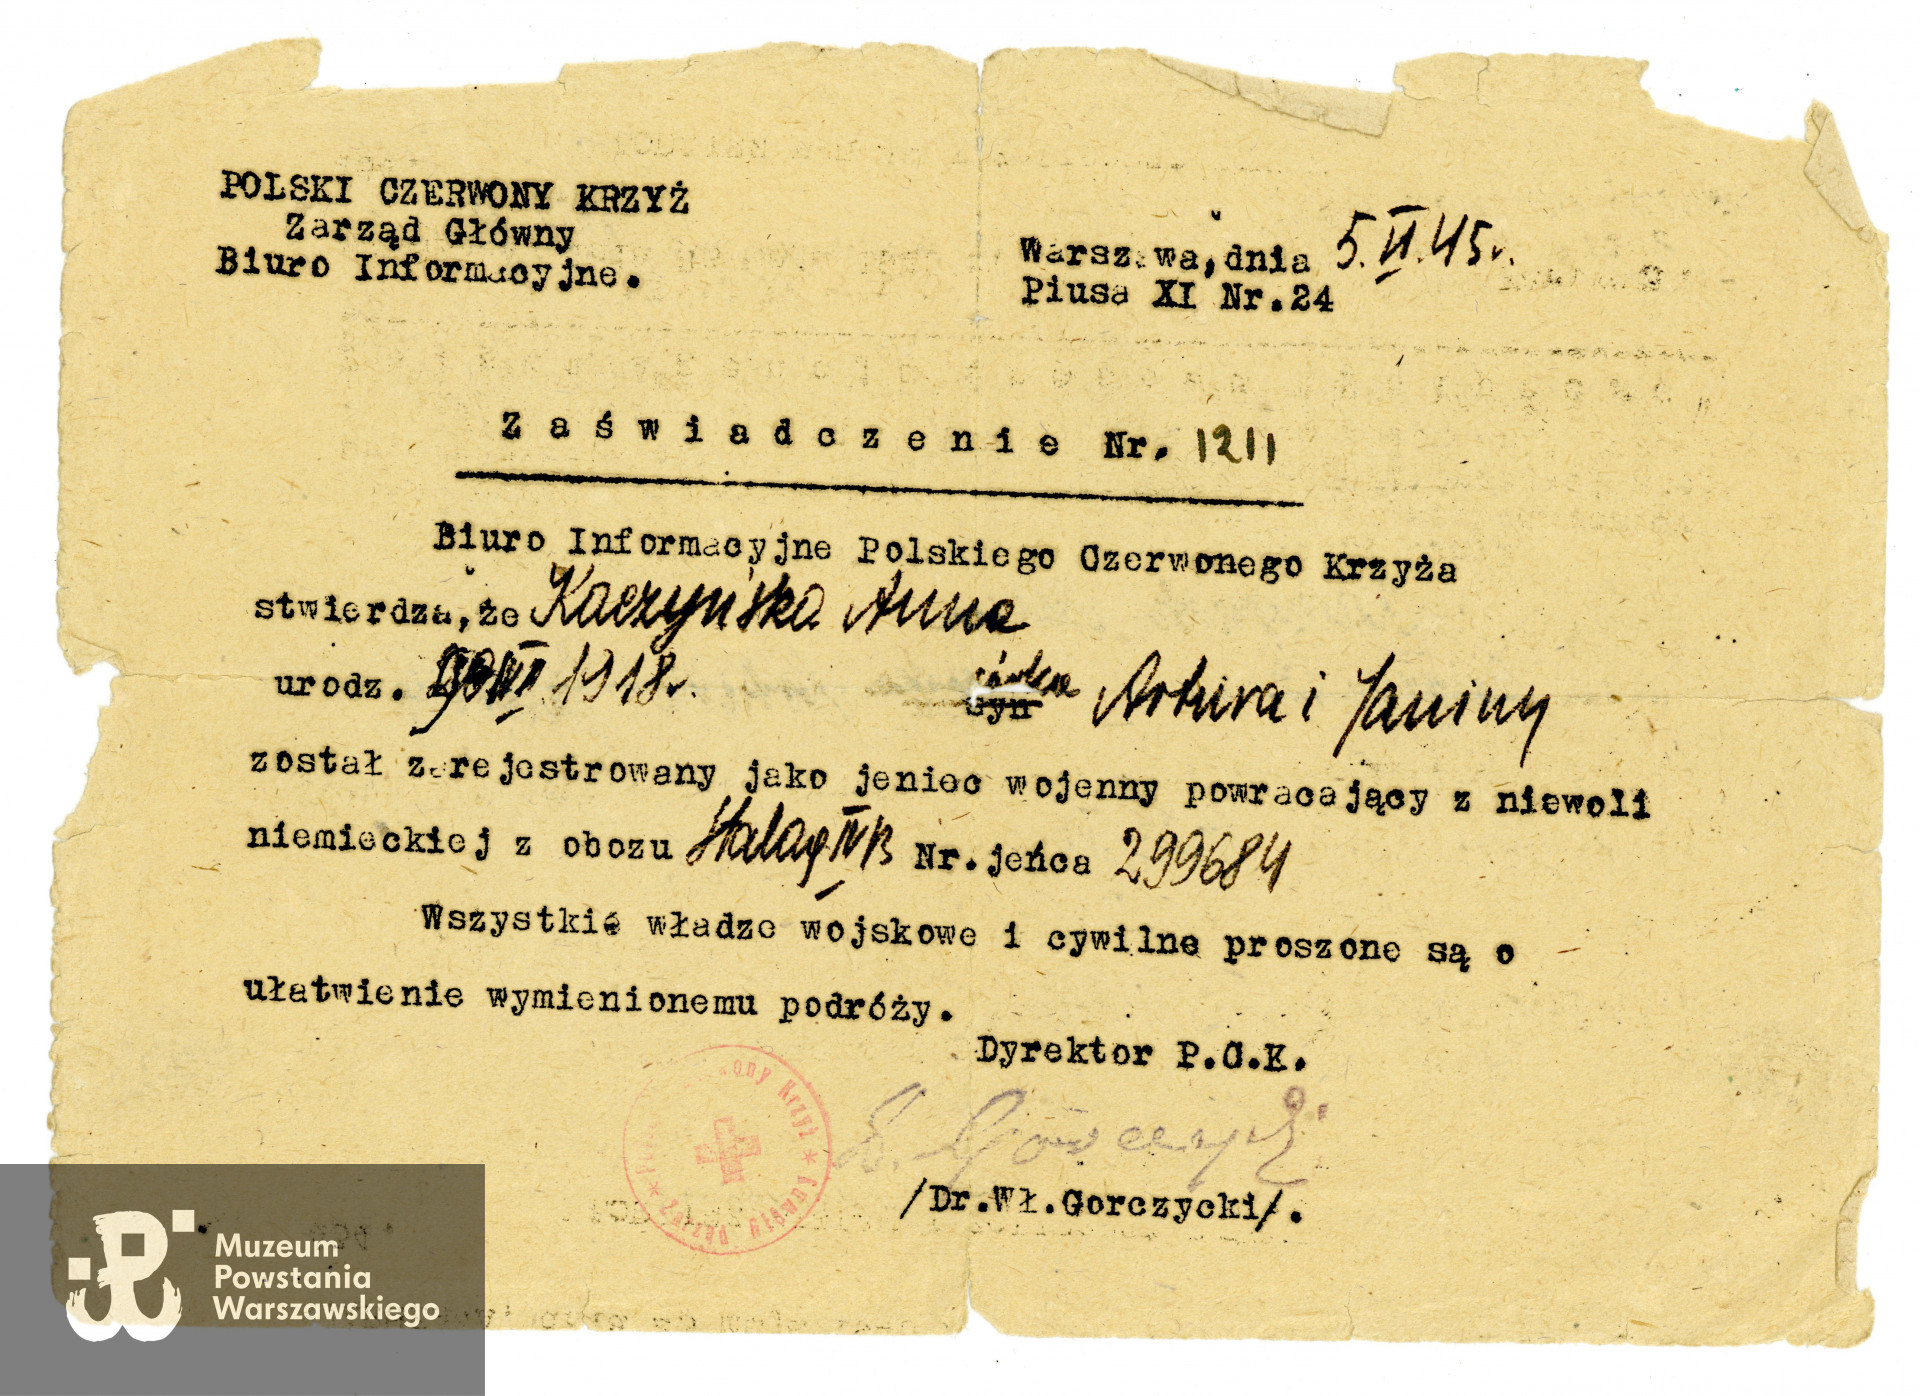 POLSKI CZERWONY KRZYŻ
Zarząd Główny
Biuro Informacyjne.
Warszawa, dnia 5.II.45r.
Piusa XI Nr.24
Zaświadczenie Nr. 1211
Biuro Informacyjne Polskiego Czerwonego Krzyża
stwierdza, że Kaczyńska Anna
urodz. 1918r. syn córka Artura i Janiny
został zarejestrowany jako jeniec wojenny powracający z niewoli
niemieckiej z obozu Stalag IV B Nr. jeńca 299684
Wszystkie władze wojskowe i cywilne proszone są o
ułatwienie wymienionemu podróży.
Dyrektor P.C.K.
W. Gorczycki
/Dr.Wł.Gorczycki/.
Czerwony Krzyż * Zarząd
Muzeum
Powstania
Warszawskiego